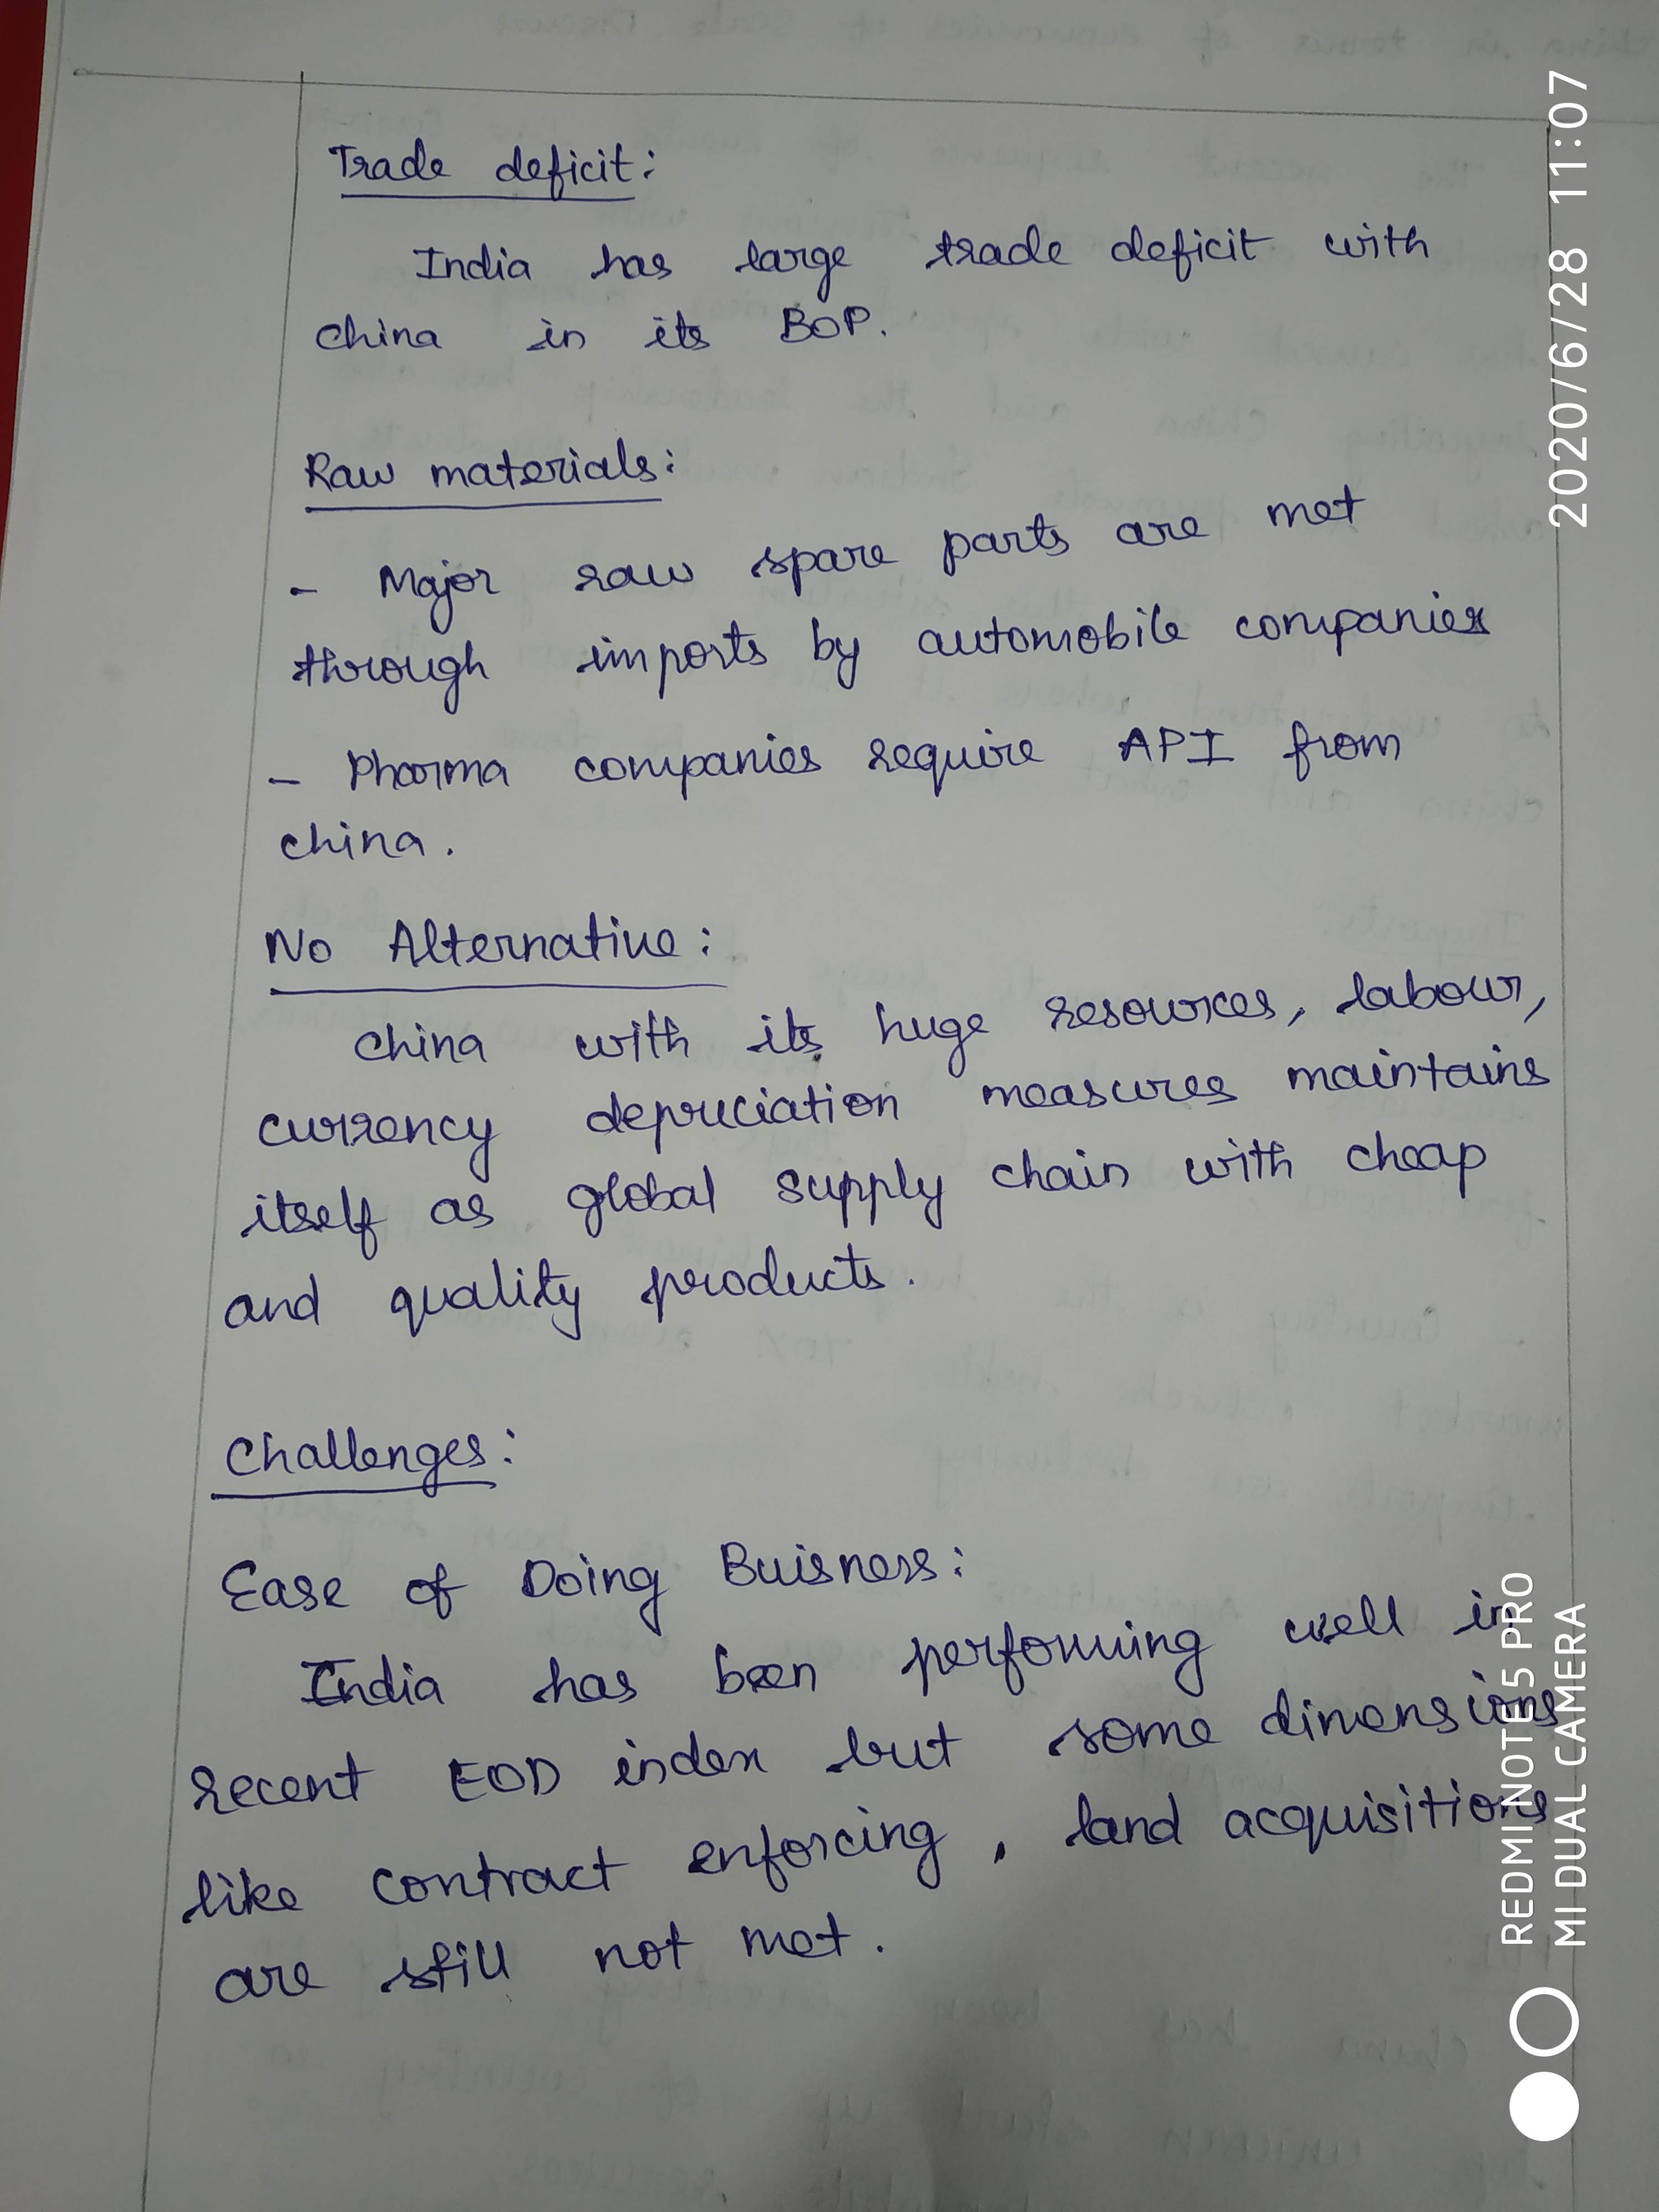 Trade deficit:
India has large trade deficit with
china in its BOP.
Raw materials:
- Major raw spare parts are met
through imports by automobile companies
- Pharma companies require API from
china.
No Alternative:
China with its huge resources, labour,
currency depreciation measures maintains
itself as global supply chain with cheap
and quality products.
Challenges:
Ease of Doing Buisness:
India has been performing well in
recent EOD index but some dimensions
like contract enforcing, land acquisitions
are still not met.
2020/6/28 11:07
REDMI NOTE 5 PRO
MI DUAL CAMERA